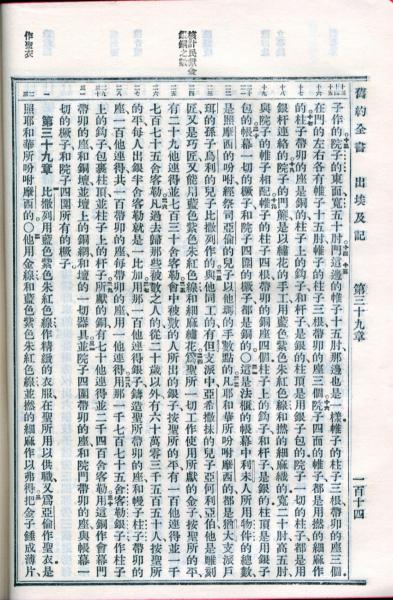 舊約全書　出埃及記　第三十九章　一百十四
子作的院子的東面寬五十肘門這邊的帷子十五肘那邊也是一樣帷子的柱子三根帶卯的座三個
在門的左右各有帷子十五肘帷子的柱子三根帶卯的座三個院子四面的帷子都是用撚的細麻作
的柱子帶卯的座是銅的柱子上的鈎子和杆子是銀的柱頂是用銀子包的院子一切的柱子都是用
銀杆連絡的院子的門簾是以繡花的手工用藍色紫色朱紅色線和撚的細麻織的寬二十肘高五肘
與院子的帷子相配帷子的柱子四根帶卯的銅座四個柱子上的鈎子和杆子是銀的柱頂是用銀子
包的帳幕一切的橛子和院子四圍的橛子都是銅的〇這是法櫃的帳幕中利未人所用物件的總數
是照摩西的吩咐經祭司亞倫的兒子以他瑪的手數點的凡耶和華所吩咐摩西的都是猶大支派戶
珥的孫子烏利的兒子比撒列作的與他同工的有但支派中亞希撒抹的兒子亞何利亞伯他是雕刻
匠又是巧匠又能用藍色紫色朱紅色線和細麻繡花爲聖所一切工作使用所獻的金子按聖所的平
有二十九他連得並七百三十舍客勒會中被數的人所出的銀子按聖所的平有一百他連得並一千
七百七十五舍客勒凡過去歸那些被數之人的從二十歲以外有六十萬零三千五百五十人按聖所
的平每人出銀半舍客勒就是一比加用那一百他連得銀子鑄造聖所帶卯的座和幔子柱子帶卯的
座一百他連得共一百帶卯的座每帶卯的座用一他連得用那一千七百七十五舍客勒銀子作柱子
上的鈎子包裹柱頂並柱子上的杆子所獻的銅有七十他連得並二千四百舍客勒用這銅作會幕門
帶卯的座和銅壇並壇上的銅網和壇的一切器具並院子四圍帶卯的座和院門帶卯的座與帳幕一
切的橛子和院子四圍所有的橛子
第三十九章　比撒列用藍色紫色朱紅色線作精緻的衣服在聖所用以供職又爲亞倫作聖衣是
照耶和華所吩咐摩西的〇他用金線和藍色紫色朱紅色線並撚的細麻作以弗得把金子錘成薄片
作聖衣